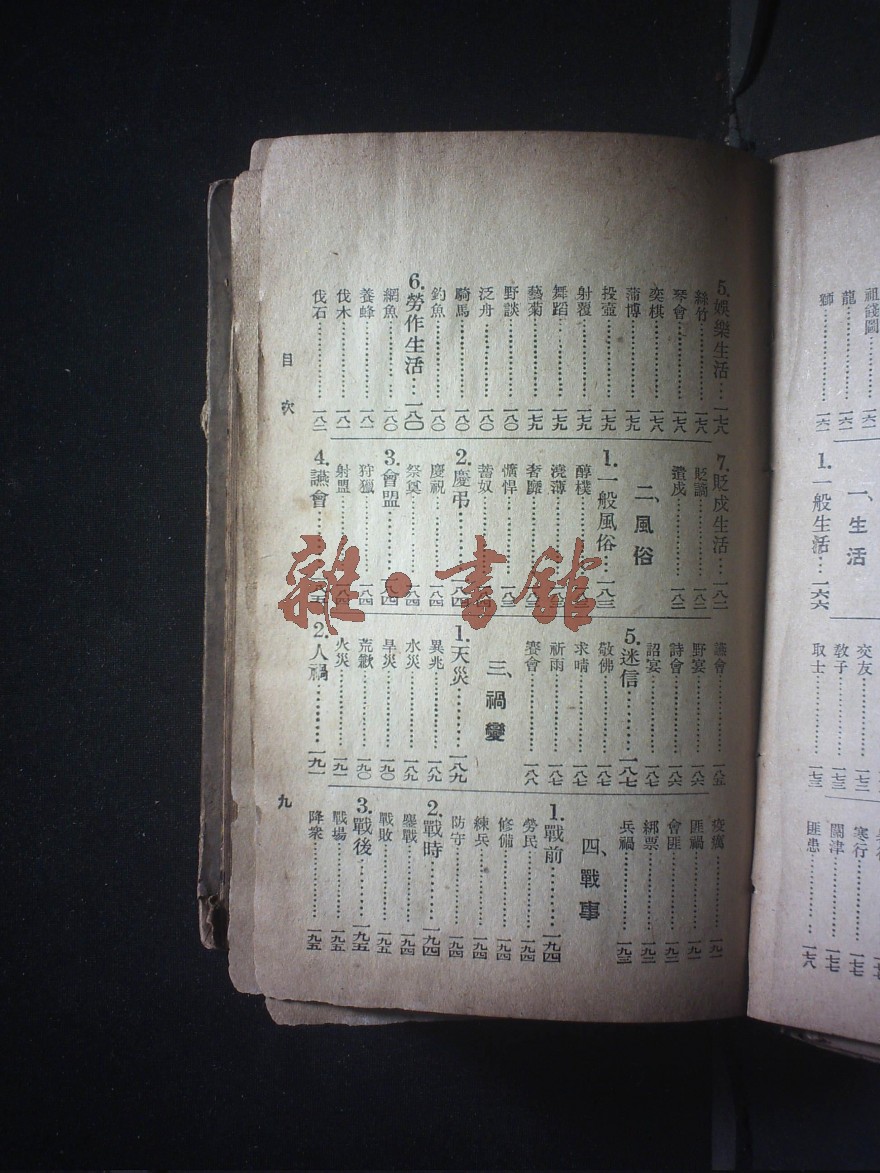 祖餞圖
龍
獅
一、生活
1.一般生活…一六六
交友
教子…一七三
取士…一七三
寒行…一七七
關津…一七七
匪患…一七八
5.娛樂生活…一七八
絲竹…一七八
琴會…一七八
奕棋…一七八
蒲博…一七九
投壺…一七九
射覆…一七九
舞蹈…一七九
藝菊…一七九
野談…一八〇
泛舟…一八〇
騎馬…一八〇
釣魚…一八〇
6.勞作生活…一八〇
網魚…一八〇
養蜂…一八一
伐木…一八一
伐石…一八二
7.貶戍生活…一八二
貶謫…一八二
遣戍…一八二
二、風俗
1.一般風俗…一八三
醇樸
澆薄…一八三
奢靡…一八三
獷悍…一八三
蓄奴
2.慶弔…一八四
慶祝…一八四
祭奠…一八四
3.會盟…一八四
狩獵…一八四
射盟…一八四
4.讌會…一八五
讌會…一八五
野宴…一八六
詩會…一八六
詔宴…一八七
5.迷信…一八七
敬佛…一八七
求晴…一八七
祈雨…一八七
賽會…一八八
三、禍變
1.天災…一八九
異兆…一八九
水災…一八九
旱災…一九〇
荒歉…一九〇
火災…一九一
2.人禍…一九一
疫癘…一九一
匪禍…一九一
會匪…一九二
綁票…一九二
兵禍…一九三
四、戰事
1.戰前…一九四
勞民…一九四
修備…一九四
練兵…一九四
防守…一九四
2.戰時…一九四
鏖戰…一九四
戰敗…一九五
3.戰後…一九五
戰場…一九五
降衆…一九五
目次
九
雜·書館